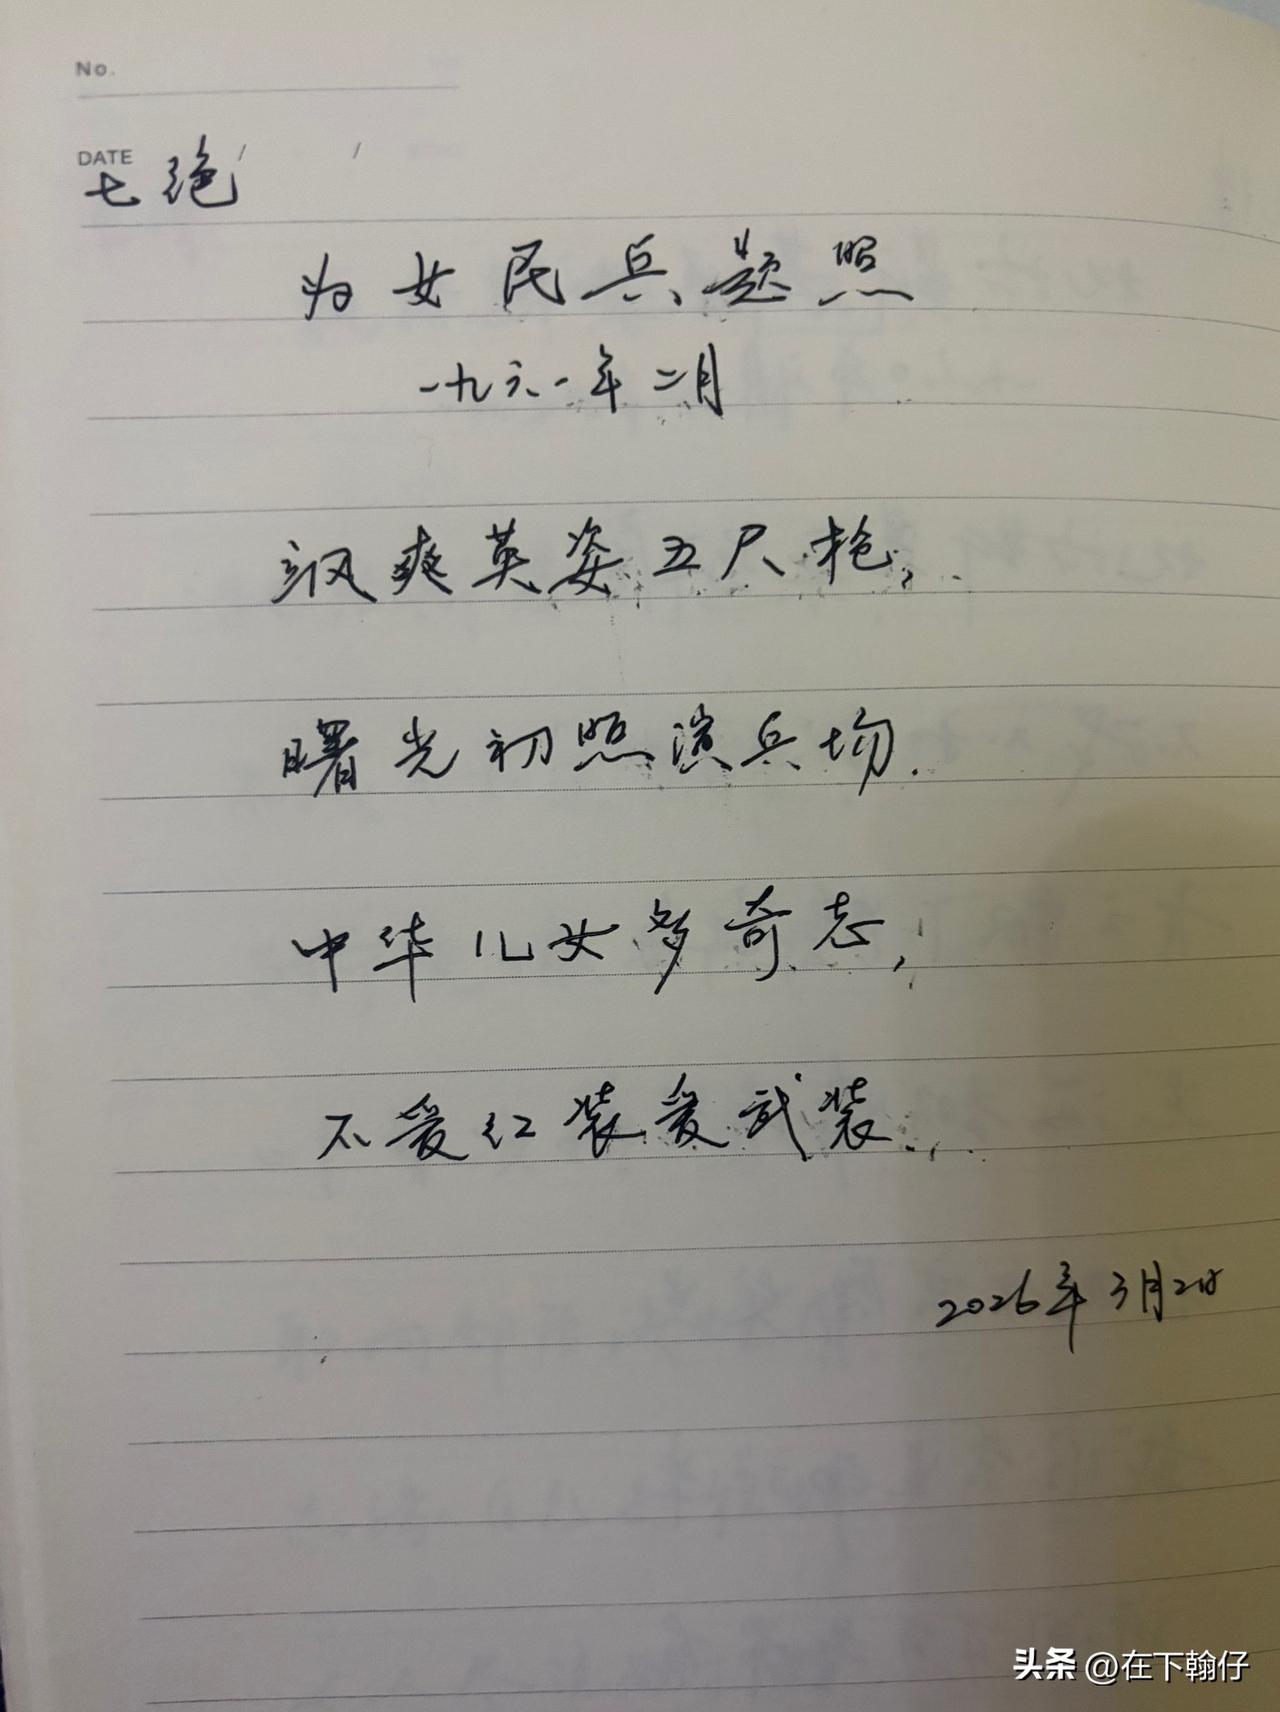 No.
DATE / /
七绝
为女民兵题照
一九六一年二月
飒爽英姿五尺枪,
曙光初照演兵场.
中华儿女多奇志,
不爱红装爱武装.
2026年3月2日
头条 @在下翰仔